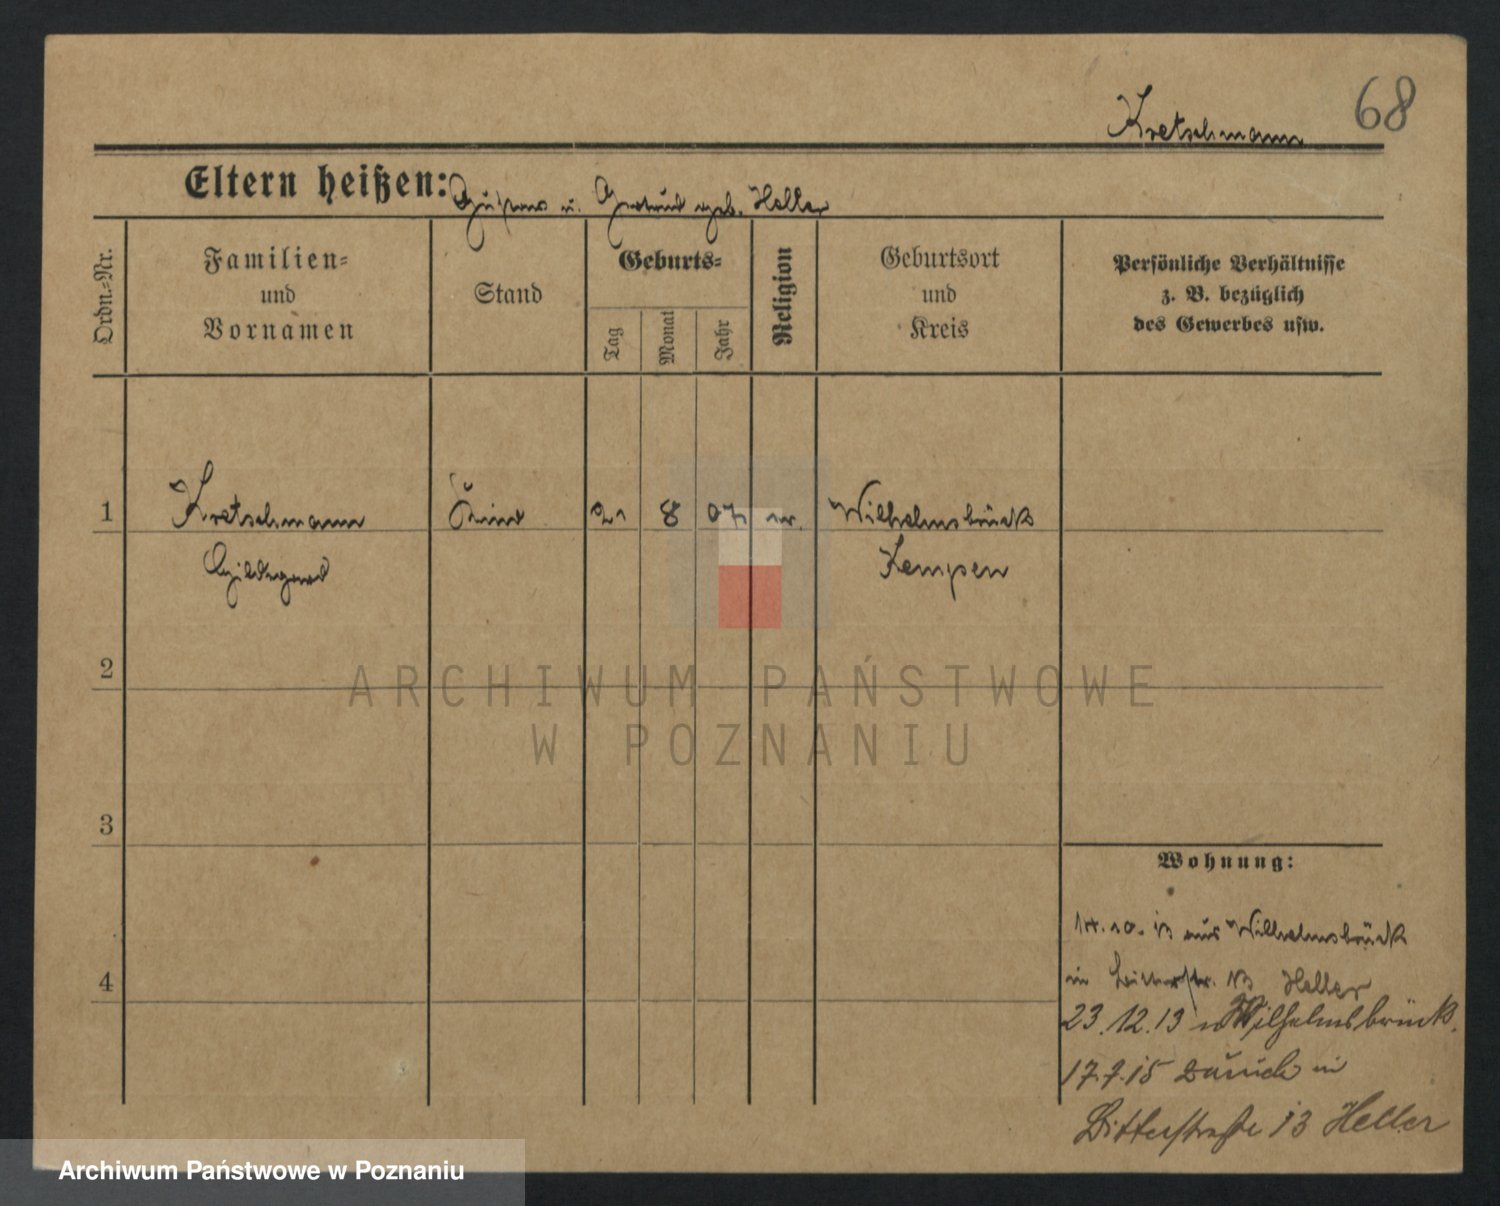 68
Kretschmann
Eltern heißen: Gustav u. Gertrud geb. Heller
Ordn.-Nr.
Familien-
und
Vornamen
Stand
Geburts-
Tag
Monat
Jahr
Religion
Geburtsort
und
Kreis
Persönliche Verhältnisse
z. B. bezüglich
des Gewerbes usw.
1 Kretschmann Kind 21 8 07 Wilhelmsbrück
Hildegard Kempen
2
ARCHIWUM PAŃSTWOWE
W POZNANIU
3
Wohnung:
14.10.13 aus Wilhelmsbrück
4
in 13 Heller
23.12.13 n Wilhelmsbrück.
17.7.15 zurück in
Bitterstraße 13 Heller
Archiwum Państwowe w Poznaniu